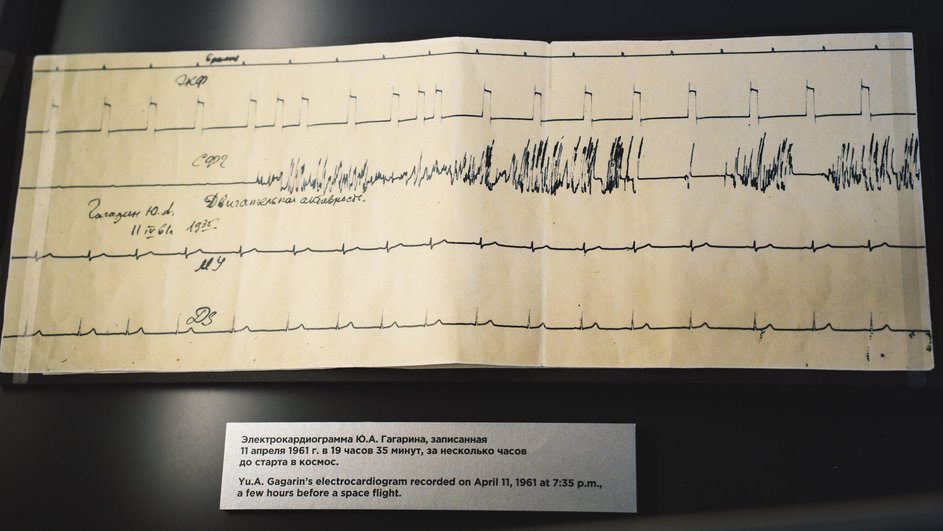 Время
ЭКФ
СФГ
Двигательная активность.
Гагарин Ю.А.
11 IV 61г. 19 35.
МУ
DS
Электрокардиограмма Ю.А. Гагарина, записанная
11 апреля 1961 г. в 19 часов 35 минут, за несколько часов
до старта в космос.
Yu.A. Gagarin's electrocardiogram recorded on April 11, 1961 at 7:35 p.m.,
a few hours before a space flight.